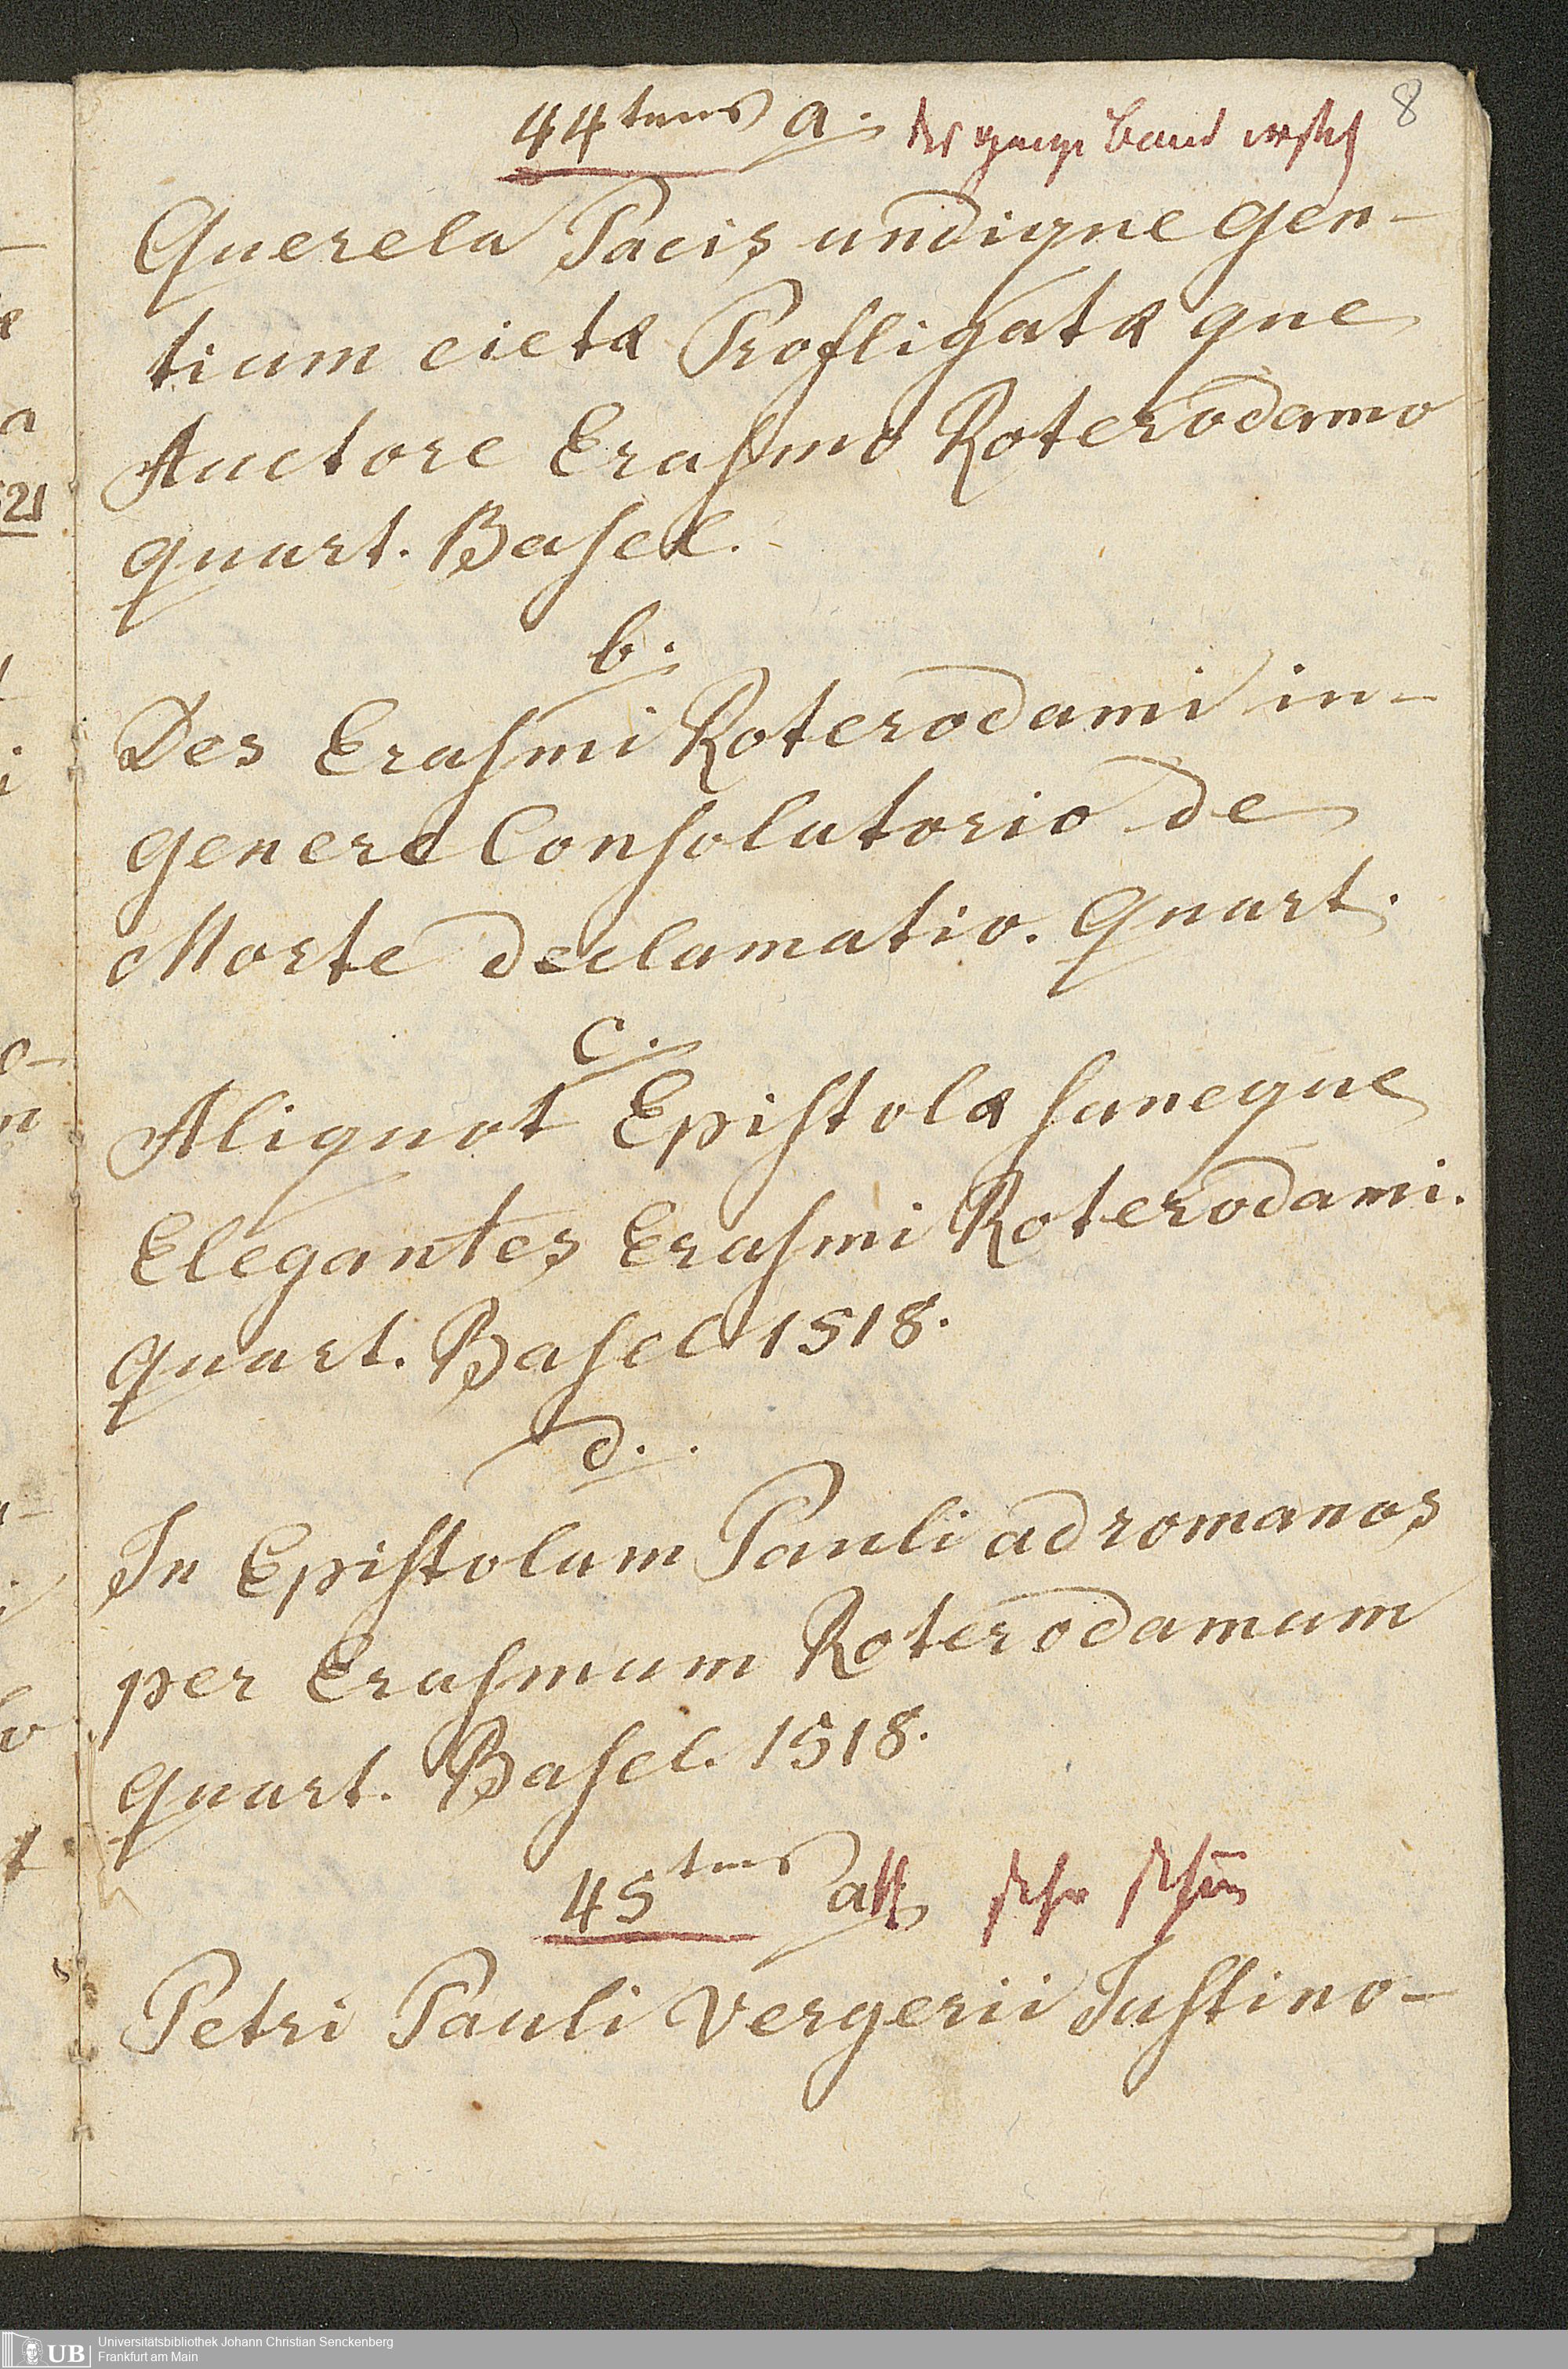 8
44tens a. der ganze Band
Querela Pacis undique gen-
tium eictæ Profligatæ que
Auctore Erasmo Roterodamo
quart. Basel.
b.
Des Erasmi Roterodami in-
genere Consolatorio de
Morte declamatio. Quart.
c.
Aliquot Epistolæ saneque
Elegantes Erasmi Roterodami.
quart. Basel 1518.
d.
In Epistolam Pauli ad romanos
per Erasmum Roterodamum
quart. Basel. 1518.
45tens a sehr schön
Petri Pauli Vergerii Justino-
UB Universitätsbibliothek Johann Christian Senckenberg
Frankfurt am Main